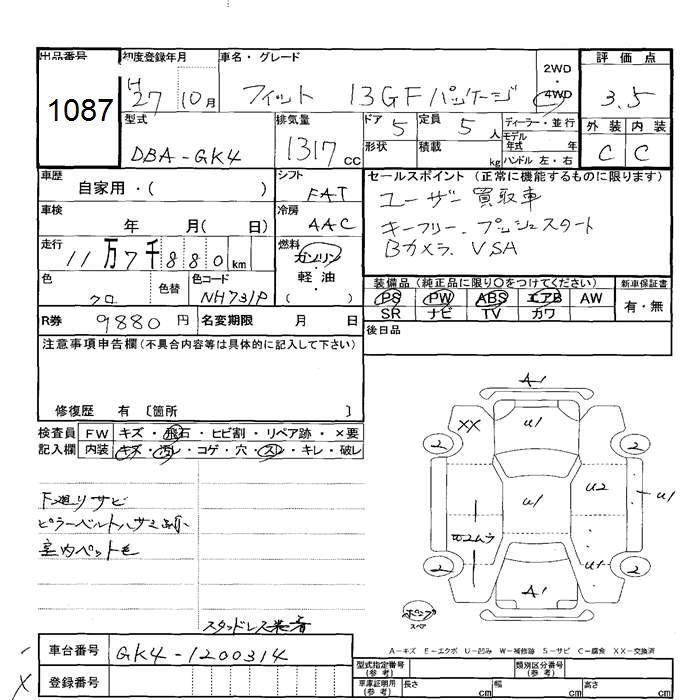 出品番号 初度登録年月 車名・グレード 2WD 評価点
1087 H 27 10月 フィット 13GFパッケージ 4WD 3.5
型式 排気量 ドア 定員 ディーラー・並行 外装 内装
DBA-GK4 1317cc 5 5人 モデル年式 年 C C
形状 積載 kg ハンドル 左・右
車歴 シフト セールスポイント (正常に機能するものに限ります)
自家用・( ) FAT ユーザー買取車
車検 冷房
年 月( 日) AAC キーフリー、プッシュスタート
走行 燃料 Bカメラ、VSA
11万7千880km ガソリン・軽油
色 色替 色コード ( ) 装備品 (純正品に限り○をつけてください) 新車保証書
クロ NH731P PS PW ABS エアB AW 有・無
SR ナビ TV カワ
R券 9880円 名変期限 月 日 後日品
注意事項申告欄(不具合内容等は具体的に記入して下さい)
修復歴 有 〔箇所 〕
検査員 FW キズ・飛石・ヒビ割・リペア跡・×要
記入欄 内装 キズ・汚レ・コゲ・穴・スレ・キレ・破レ
下廻りサビ
ピラーベルトハサミ
室内ペット毛
スタッドレス装着
A1
XX U1
2 2
U1 U2 U1
2 2
A1
スペア
A-キズ E-エクボ U-凹み W-補修跡 S-サビ C-腐食 XX-交換済
車台番号 GK4-1200314 型式指定番号(参考) 類別区分番号(参考)
X 登録番号 車庫証明用(参考) 長さ cm 幅 cm 高さ cm